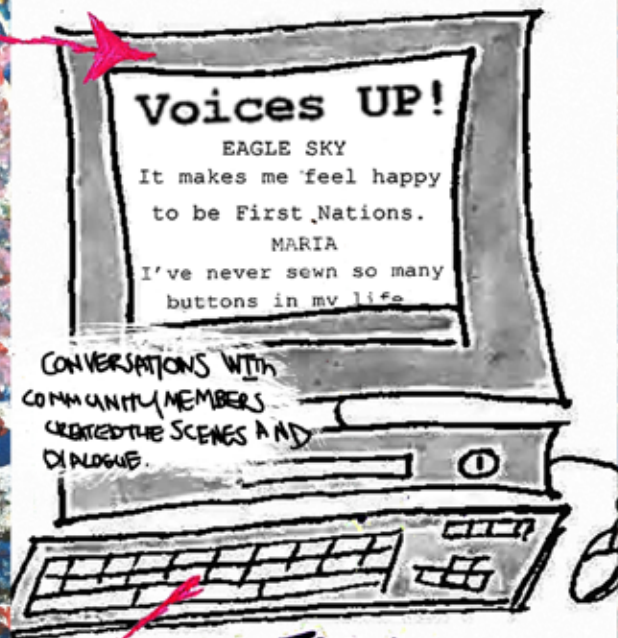 Voices UP!
EAGLE SKY
It makes me feel happy
to be First Nations.
MARIA
I've never sewn so many
buttons in my life
CONVERSATIONS WITH
COMMUNITY MEMBERS
CREATED THE SCENES AND
DIALOGUE.